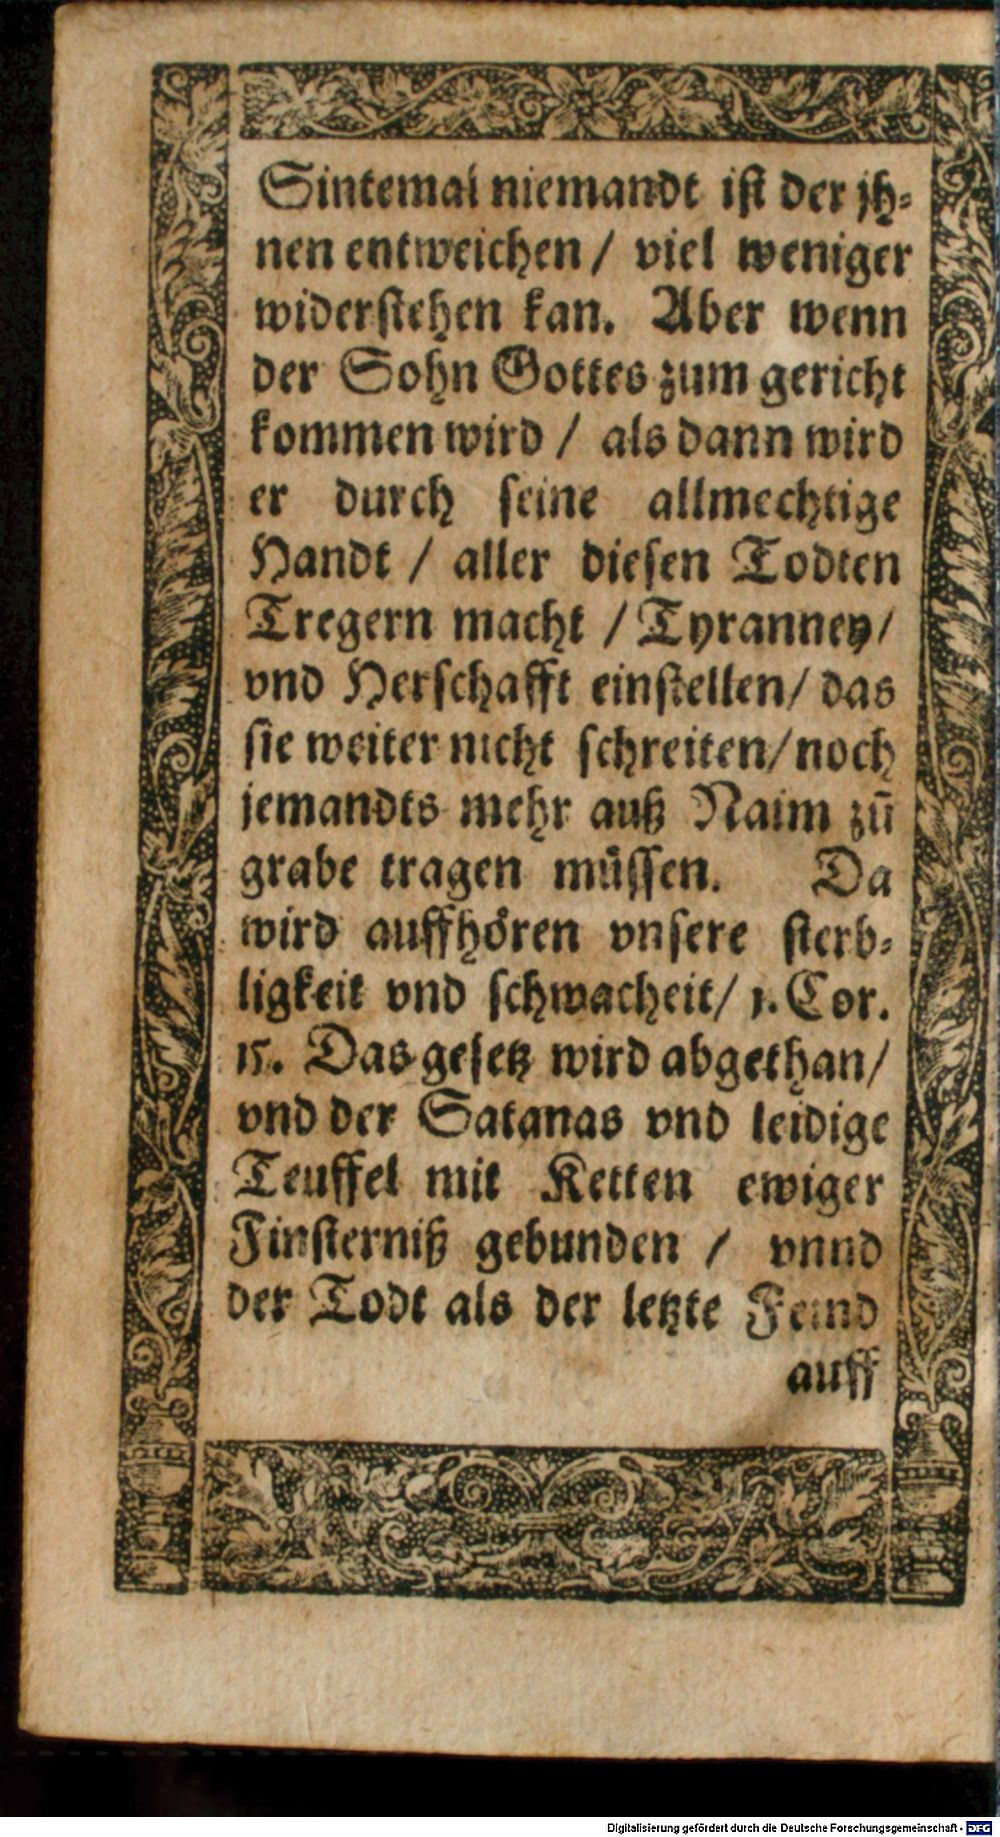 Sintemal niemandt ist der jh⸗
nen entweichen / viel weniger
widerstehen kan. Aber wenn
der Sohn Gottes zum gericht
kommen wird / als dann wird
er durch seine allmechtige
Handt / aller diesen Todten
Tregern macht / Tyranney/
vnd Herschafft einstellen/ das
sie weiter nicht schreiten/ noch
jemandts mehr auß Naim zū
grabe tragen muͤssen. Da
wird auffhoͤren vnsere sterb⸗
ligkeit vnd schwacheit/ 1. Cor.
15. Das gesetz wird abgethan/
vnd der Satanas vnd leidige
Teuffel mit Ketten ewiger
Finsterniß gebunden / vnnd
der Todt als der letzte Feind
auff
Digitalisierung gefördert durch die Deutsche Forschungsgemeinschaft - DFG